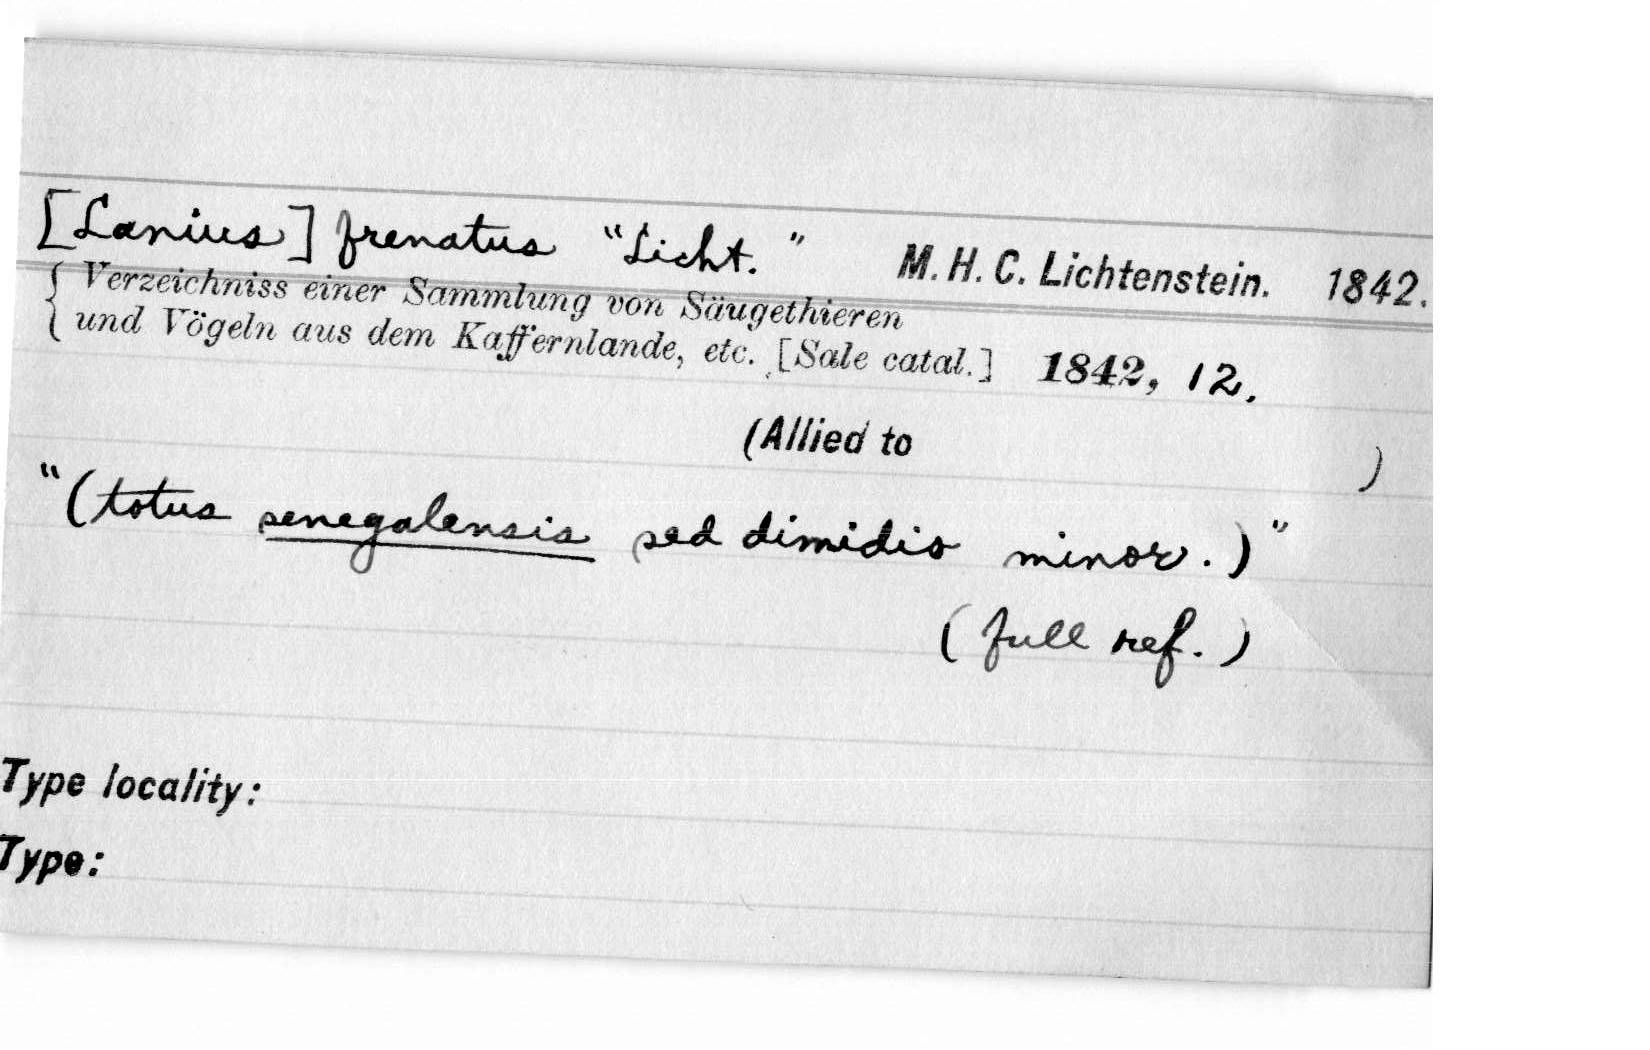 [Lanius] frenatus "Licht." M. H. C. Lichtenstein. 1842.
{ Verzeichniss einer Sammlung von Säugethieren
und Vögeln aus dem Kaffernlande, etc. [Sale catal.] 1842, 12.
(Allied to )
"(totus senegalensis sed dimidio minor.)"
(full ref.)
Type locality:
Type: